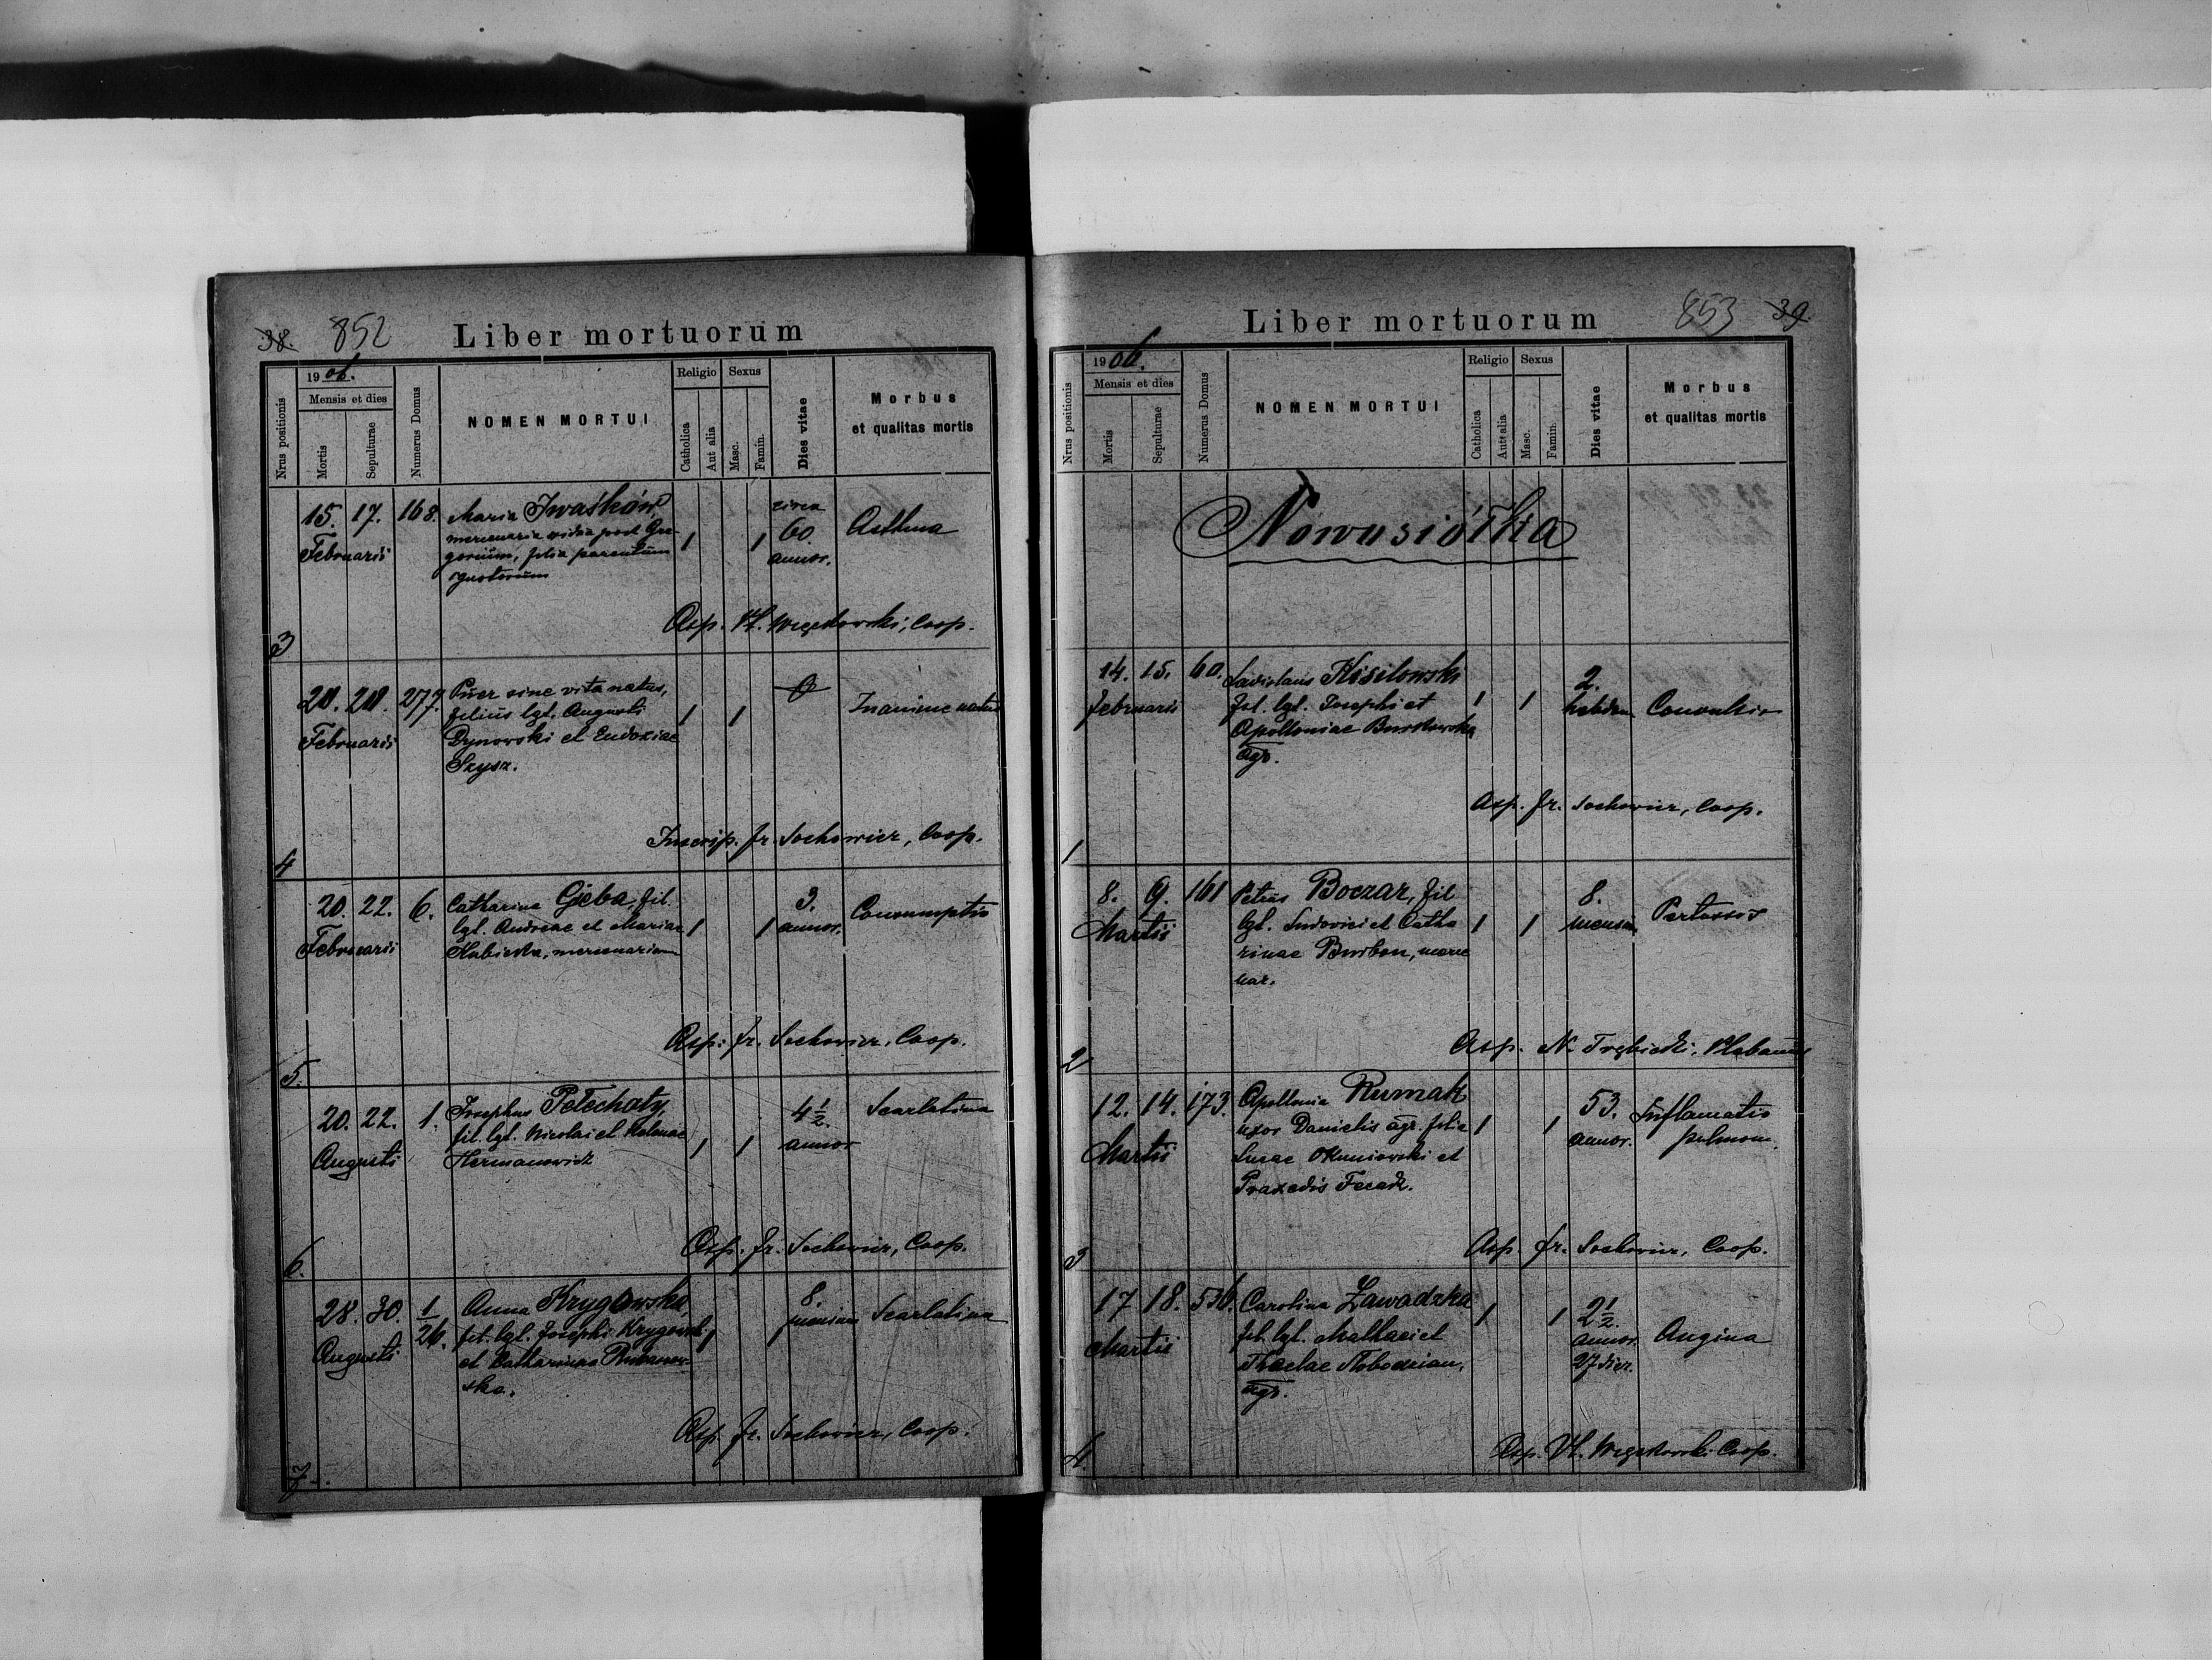 38. 852 Liber mortuorum
Nrus positionis
1906.
Mensis et dies
Mortis
Sepulturae
Numerus Domus
NOMEN MORTUI
Religio
Catholica
Aut alia
Sexus
Masc.
Famin.
Dies vitae
Morbus
et qualitas mortis
3
15. 17. 168.
Februarii
Maria Iwaśków,
mercenaria vidua post Gre-
gorium, filia parentum
ignotorum
1 1
circa
60.
annor.
Asthma
Asp. Vl. Węgłowski, Coop.
4
20. 20. 277.
Februarii
Puer sine vita natus,
filius lgt. Augusti
Dynowski et Eudoxiae
Szysz.
1 1
0
Inanime natus
Inscrip. fr. Sochowicz, Coop.
5.
20. 22. 6.
Februarii
Catharina Gjeba, fil.
lgt. Andreae et Mariae
Kubicka, mercenariam
1 1
3.
annor.
Consumptio
Asp. fr. Sochowicz, Coop.
6.
20. 22. 1.
Augusti
Josephus Petechaty,
fil. lgt. Nicolai et Helenae
Hermanowicz
1 1
4 1/2
annor
Scarlatina
Asp. fr. Sochowicz, Coop.
7.
28. 30. 1/26.
Augusti
Anna Krygowska,
fil. lgt. Josephi Krygowski
et Catharinae
ska.
1 1
8.
mensium
Scarlatina
Asp. fr. Sochowicz, Coop.
Liber mortuorum 853 39.
Nrus positionis
1906.
Mensis et dies
Mortis
Sepulturae
Numerus Domus
NOMEN MORTUI
Religio
Catholica
Aut alia
Sexus
Masc.
Famin.
Dies vitae
Morbus
et qualitas mortis
Nowosiółka
1
14. 15. 60.
februarii
Ladislaus Kisilowski
fil. lgt. Josephi et
Apolloniae
agr.
1 1
2.
hebdom
Convulsio
Asp. fr. Sochowicz, Coop.
2
8. 9. 161
Martii
Petrus Boczar, fil
lgt. Ludovici et Catha
rinae Burbon, merce
nar.
1 1
8.
mensium
Pertussis
Asp. N. Trębicki, Plebanus
3
12. 14. 173.
Martii
Apollonia Rumak
uxor Danielis agr. filia
Lucae Okuniowski et
Praxedis Fecadz.
1 1
53.
annor.
Inflamatio
pulmon.
Asp. fr. Sochowicz, Coop.
4.
17 18. 536.
Martii
Carolina Zawadzka
fil. lgt. Mathaei et
Theclae Słobodzian,
agr.
1 1
2 1/2
annor.
27 dier.
Angina
Asp. Vl. Węgłowski Coop.